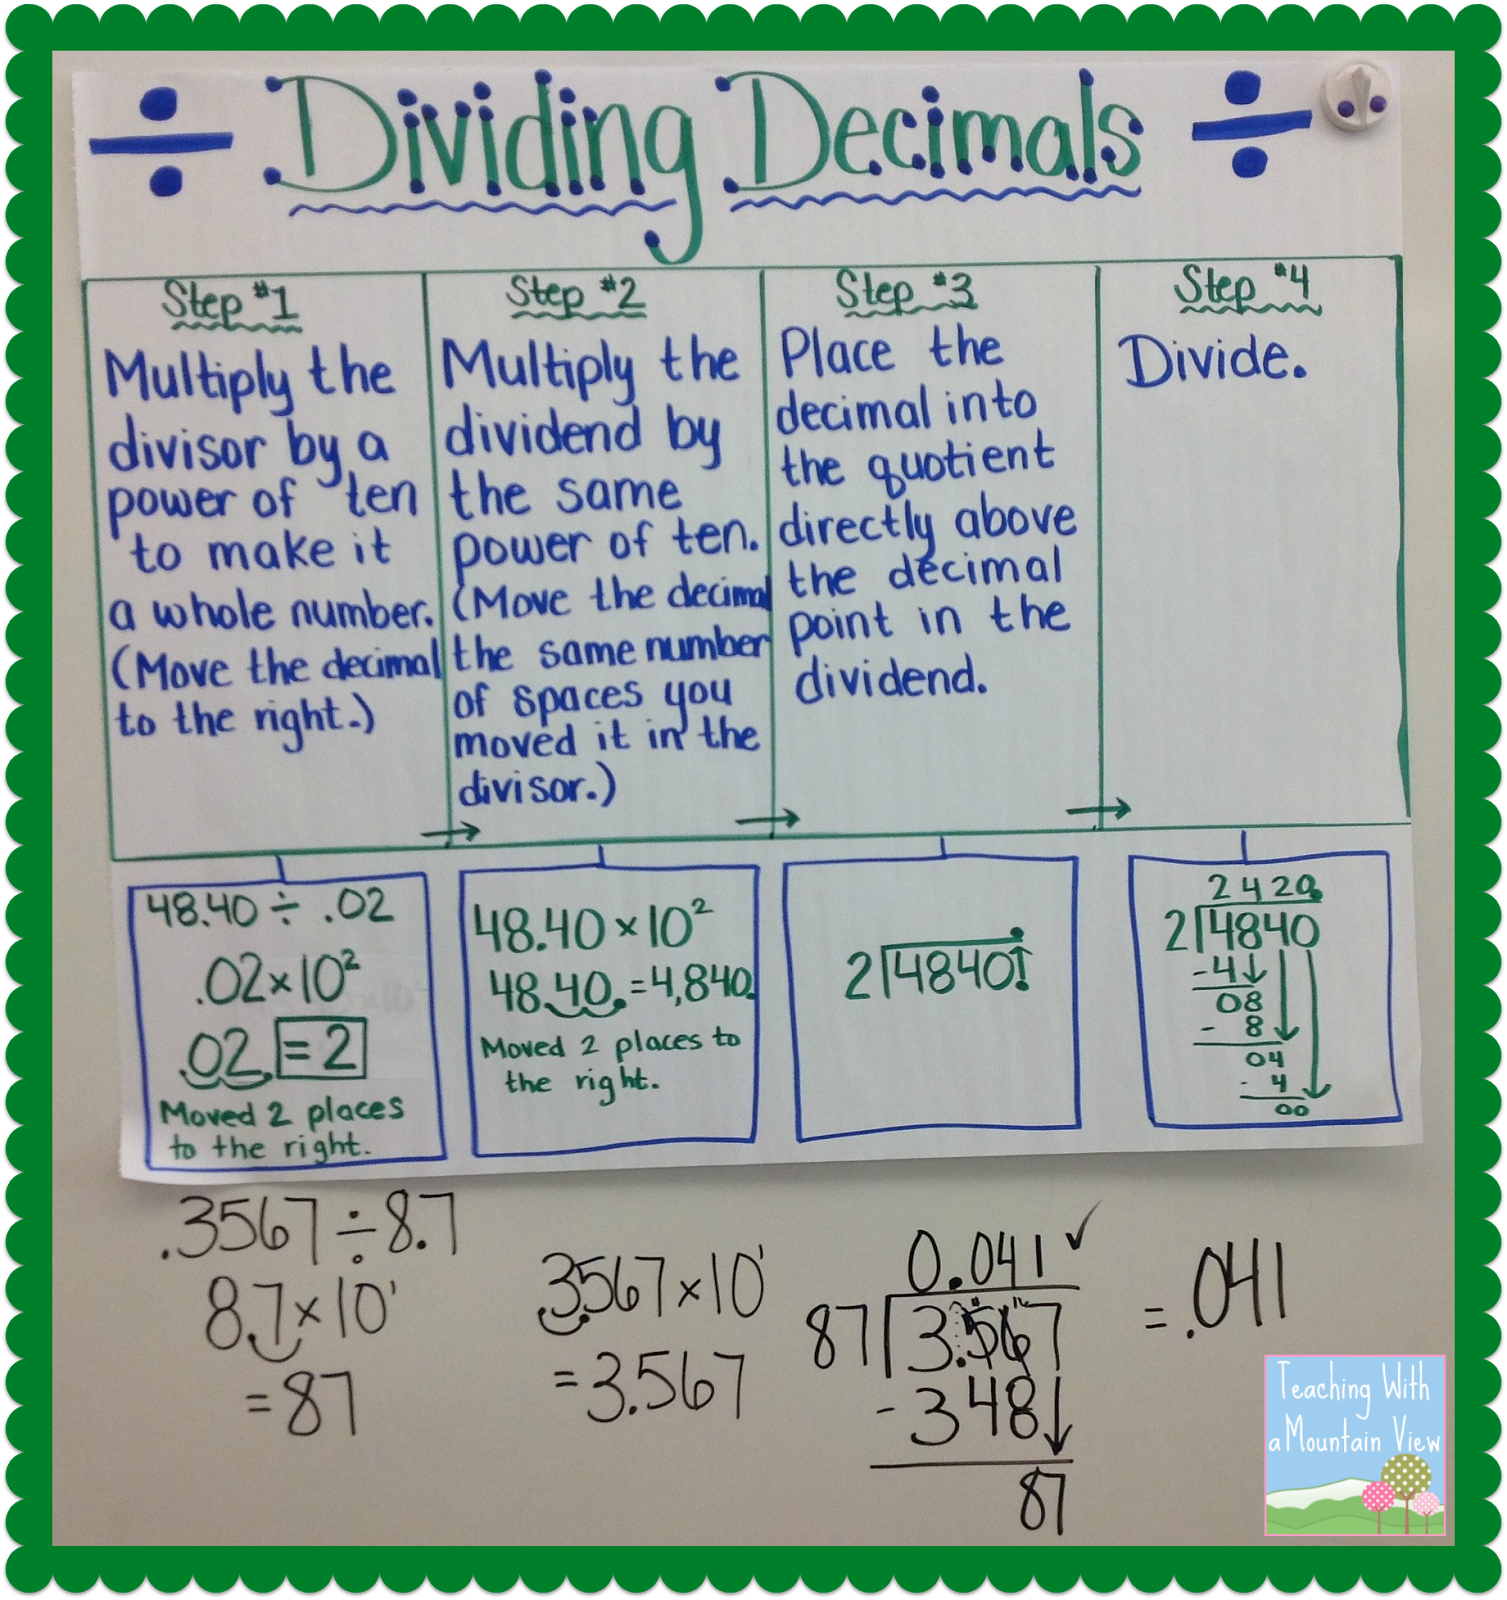 ÷ Dividing Decimals ÷
Step #1
Multiply the
divisor by a
power of ten
to make it
a whole number.
(Move the decimal
to the right.)
Step #2
Multiply the
dividend by
the same
power of ten.
(Move the decimal
the same number
of spaces you
moved it in the
divisor.)
Step #3
Place the
decimal into
the quotient
directly above
the decimal
point in the
dividend.
Step #4
Divide.
48.40 ÷ .02
.02 × 10²
.02. = 2
Moved 2 places
to the right.
48.40 × 10²
48.40. = 4,840.
Moved 2 places to
the right.
2)4840.
2420.
2)4840
-4
08
- 8
04
- 4
00
.3567 ÷ 8.7
8.7 × 10¹
= 87
.3567 × 10¹
= 3.567
0.041 ✓
87)3.567
- 348
87
= .041
Teaching With
a Mountain View